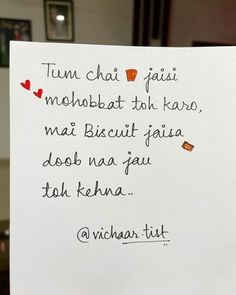 Tum chai jaisi
mohobbat toh karo,
mai Biscuit jaisa
doob naa jau
toh kehna..
@vichaar.tist